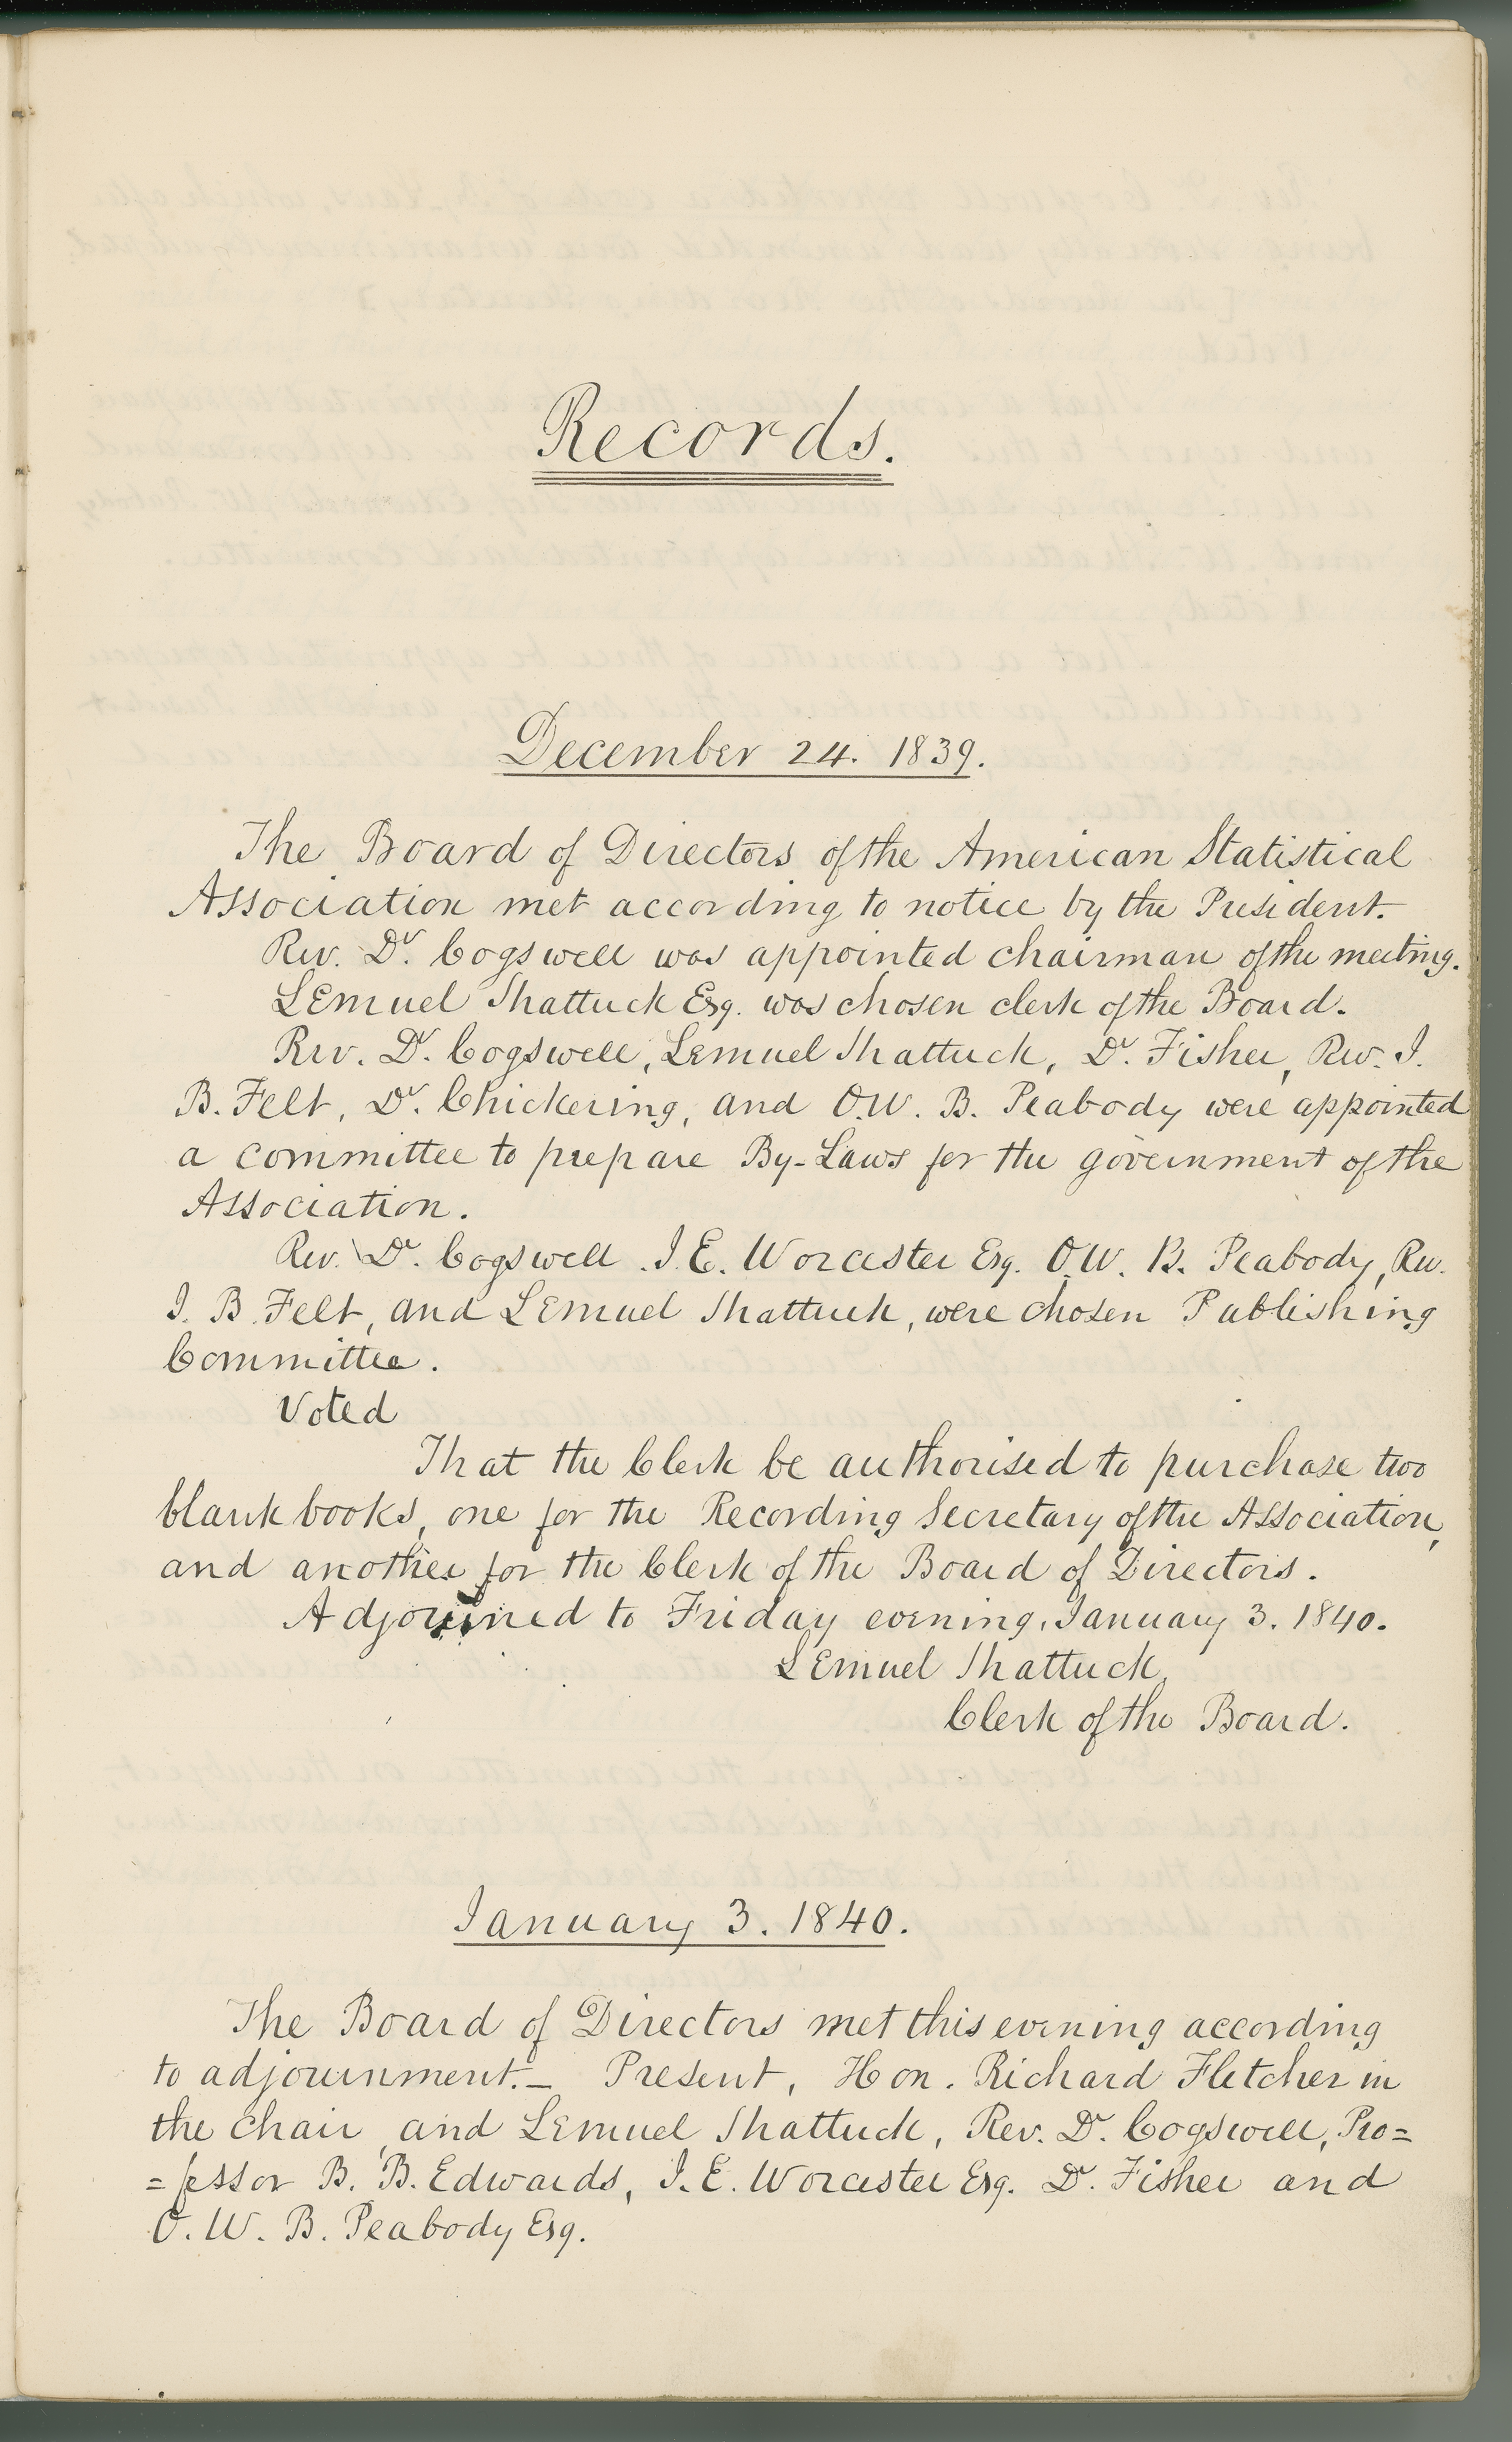 Records.
December 24. 1839.
The Board of Directors of the American Statistical
Association met according to notice by the President.
Rev. Dr. Cogswell was appointed chairman of the meeting.
Lemuel Shattuck Esq. was chosen clerk of the Board.
Rev. Dr. Cogswell, Lemuel Shattuck, Dr. Fisher, Rev. J.
B. Felt, Dr. Chickering, and O.W. B. Peabody were appointed
a committee to prepare By-Laws for the government of the
Association.
Rev. Dr. Cogswell. J. E. Worcester Esq. O.W. B. Peabody, Rev.
J. B. Felt, and Lemuel Shattuck, were chosen Publishing
Committee.
Voted
That the Clerk be authorised to purchase two
blank books, one for the Recording Secretary of the Association,
and another for the Clerk of the Board of Directors.
Adjourned to Friday evening, January 3. 1840.
Lemuel Shattuck,
Clerk of the Board.
January 3. 1840.
The Board of Directors met this evening according
to adjournment.— Present, Hon. Richard Fletcher in
the chair, and Lemuel Shattuck, Rev. Dr. Cogswell, Pro=
=fessor B. B. Edwards, J. E. Worcester Esq. Dr. Fisher and
O. W. B. Peabody Esq.